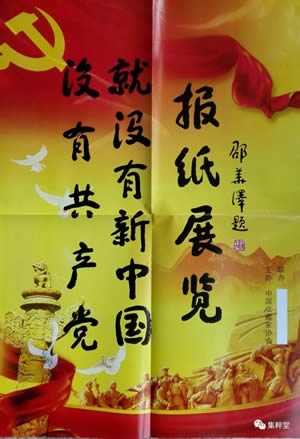 没有共产党
就没有新中国
报纸展览
邵华泽题
主办：中国收藏家协会
联办
集粹堂